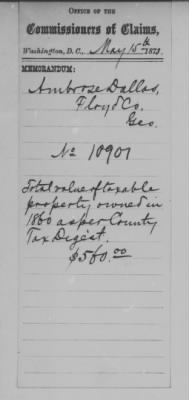 OFFICE OF THE
Commissioners of Claims,
Washington, D. C., May 15th 1873.
MEMORANDUM:
Ambrose Dallas,
Floyd Co.
Geo.
No 10901
Total value of taxable
property owned in
1860 as per County
Tax Digest.
$560.00